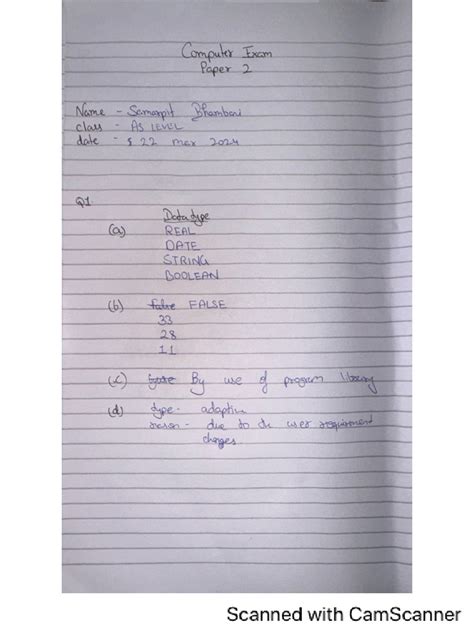 Computer Exam
Paper 2
Name - Samarpit Bhambani
class - AS LEVEL
date - 22 Mar 2024
Q1.
Data type
(a) REAL
DATE
STRING
BOOLEAN
(b) false FALSE
33
28
11
(c) By use of program library
(d) type - adaptive
reason - due to user requirement
changes.
Scanned with CamScanner